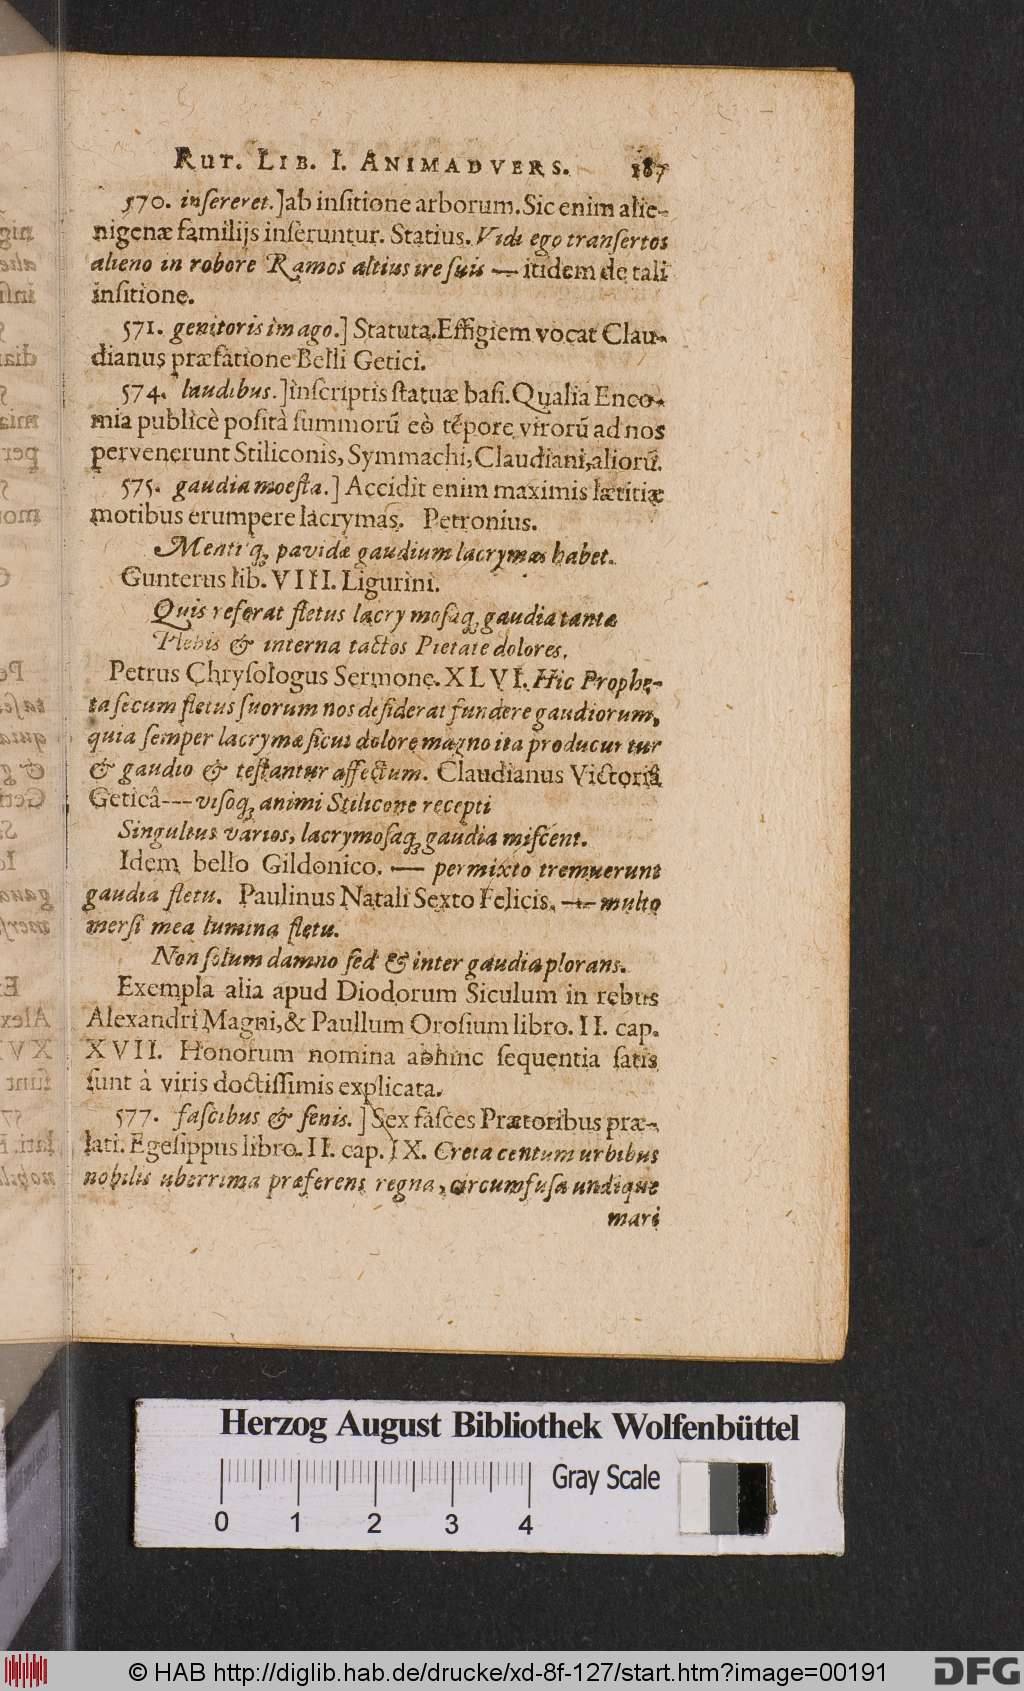 RUT. LIB. I. ANIMADVERS. 187
570. inſereret.]ab inſitione arborum. Sic enim alie-
nigenæ familijs inſeruntur. Statius. Vidi ego tranſertos
alieno in robore Ramos altius ire ſuis — itidem de tali
inſitione.
571. genitoris imago.] Statuta. Effigiem vocat Clau-
dianus præfatione Belli Getici.
574. laudibus.]inſcriptis ſtatuæ baſi. Qualia Enco-
mia publicè poſità ſummorũ eò tẽpore virorũ ad nos
pervenerunt Stiliconis, Symmachi, Claudiani, aliorũ.
575. gaudia moeſta.] Accidit enim maximis lætitiæ
motibus erumpere lacrymas. Petronius.
Mentiq; pavidæ gaudium lacrymas habet.
Gunterus lib. VIII. Ligurini.
Quis referat fletus lacrymoſaq; gaudia tantæ
Plebis & interna tactos Pietate dolores.
Petrus Chryſologus Sermone. XLVI. Hic Prophe-
ta ſecum fletus ſuorum nos deſiderat fundere gaudiorum,
quia ſemper lacrymæ ſicut dolore magno ita producuntur
& gaudio & teſtantur affectum. Claudianus Victoriâ
Geticâ --- viſoq; animi Stilicone recepti
Singultus varios, lacrymoſaq; gaudia miſcent.
Idem bello Gildonico. — permixto tremuerunt
gaudia fletu. Paulinus Natali Sexto Felicis. — multo
merſi mea lumina fletu.
Non ſolum damno ſed & inter gaudia plorans.
Exempla alia apud Diodorum Siculum in rebus
Alexandri Magni, & Paullum Oroſium libro. II. cap.
XVII. Honorum nomina abhinc ſequentia ſatis
ſunt à viris doctiſſimis explicata.
577. faſcibus & ſenis.] Sex faſces Prætoribus præ-
lati. Egeſippus libro. II. cap. IX. Creta centum urbibus
nobilis uberrima præferens regna, circumfuſa undique
mari
Herzog August Bibliothek Wolfenbüttel
Gray Scale
0 1 2 3 4
© HAB http://diglib.hab.de/drucke/xd-8f-127/start.htm?image=00191 DFG